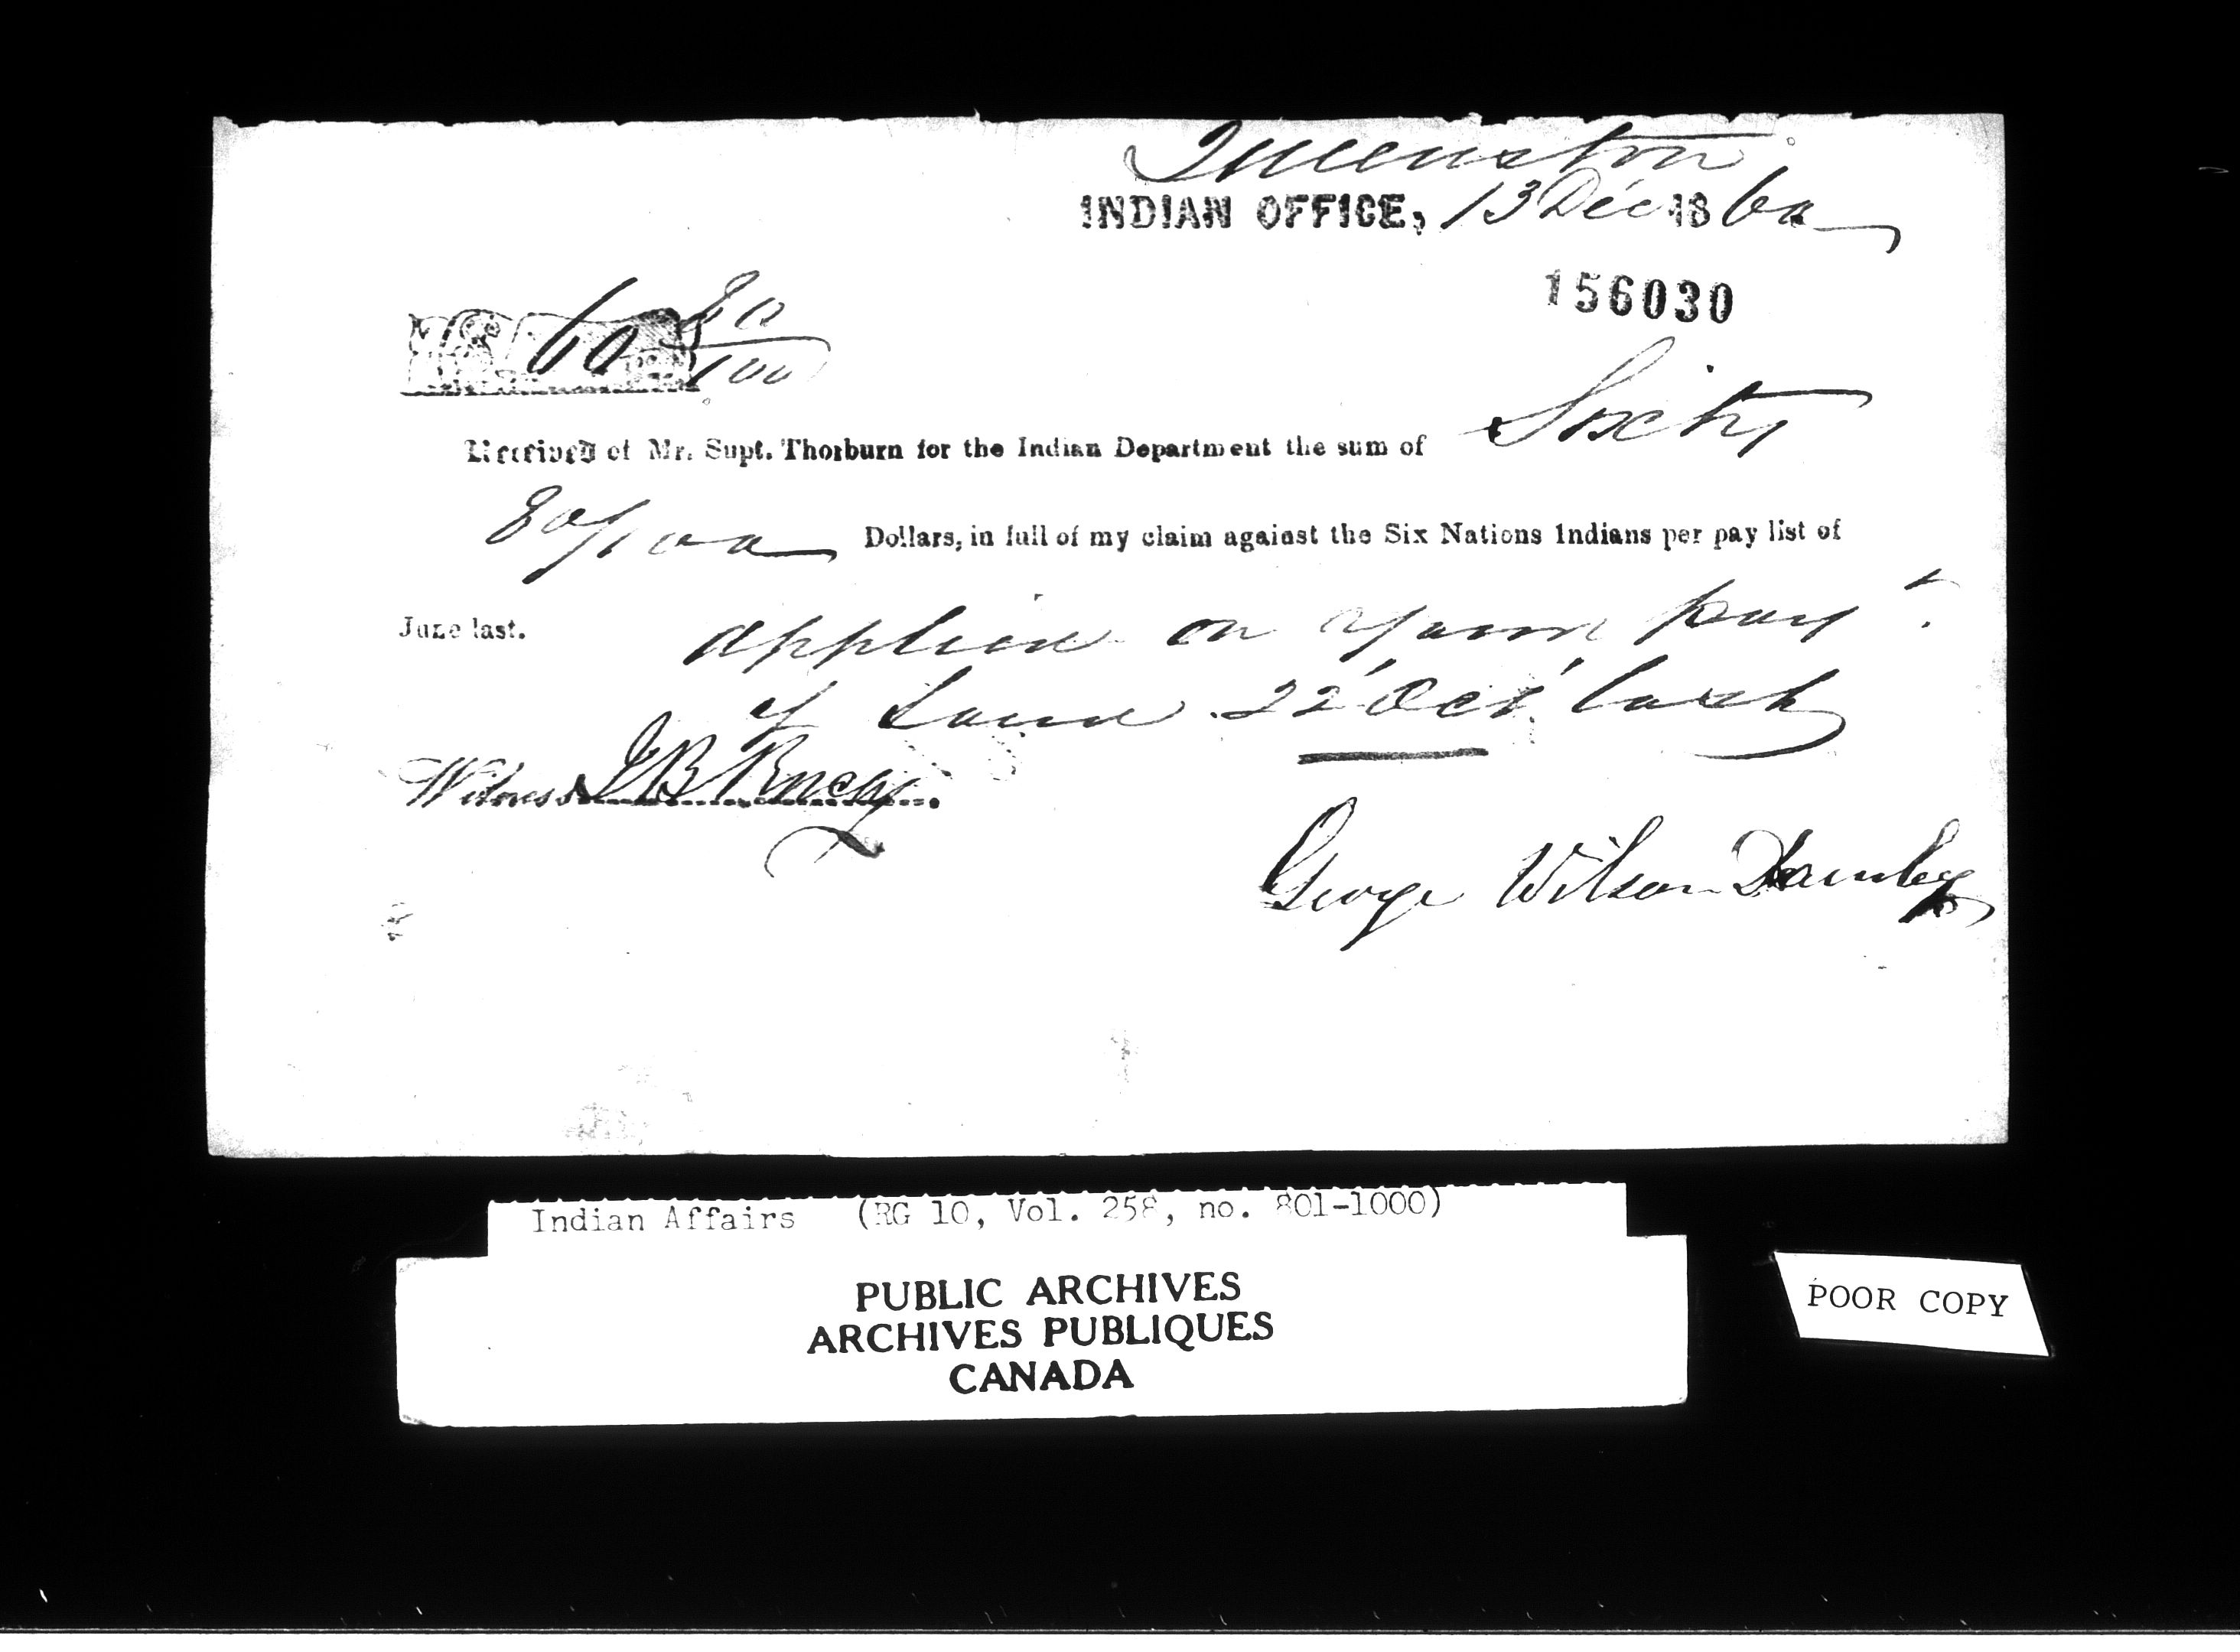 Queenston
INDIAN OFFICE, 13 Dec 1860
156030
60 80/100
Received of Mr. Supt. Thorburn for the Indian Department the sum of Sixty
80/100 Dollars, in full of my claim against the Six Nations Indians per pay list of
June last. applied on your pay t
of Land 22 Oct last
Witness J B
George Wilson
Indian Affairs (RG 10, Vol. 258, no. 801-1000)
PUBLIC ARCHIVES
ARCHIVES PUBLIQUES
CANADA
POOR COPY